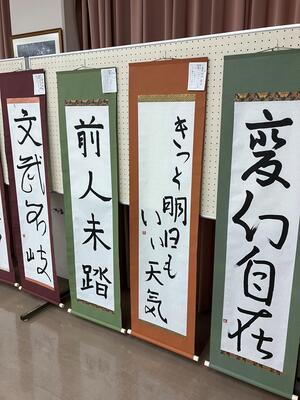 変幻自在
きっと明日も
いい天気
前人未踏
文武不岐